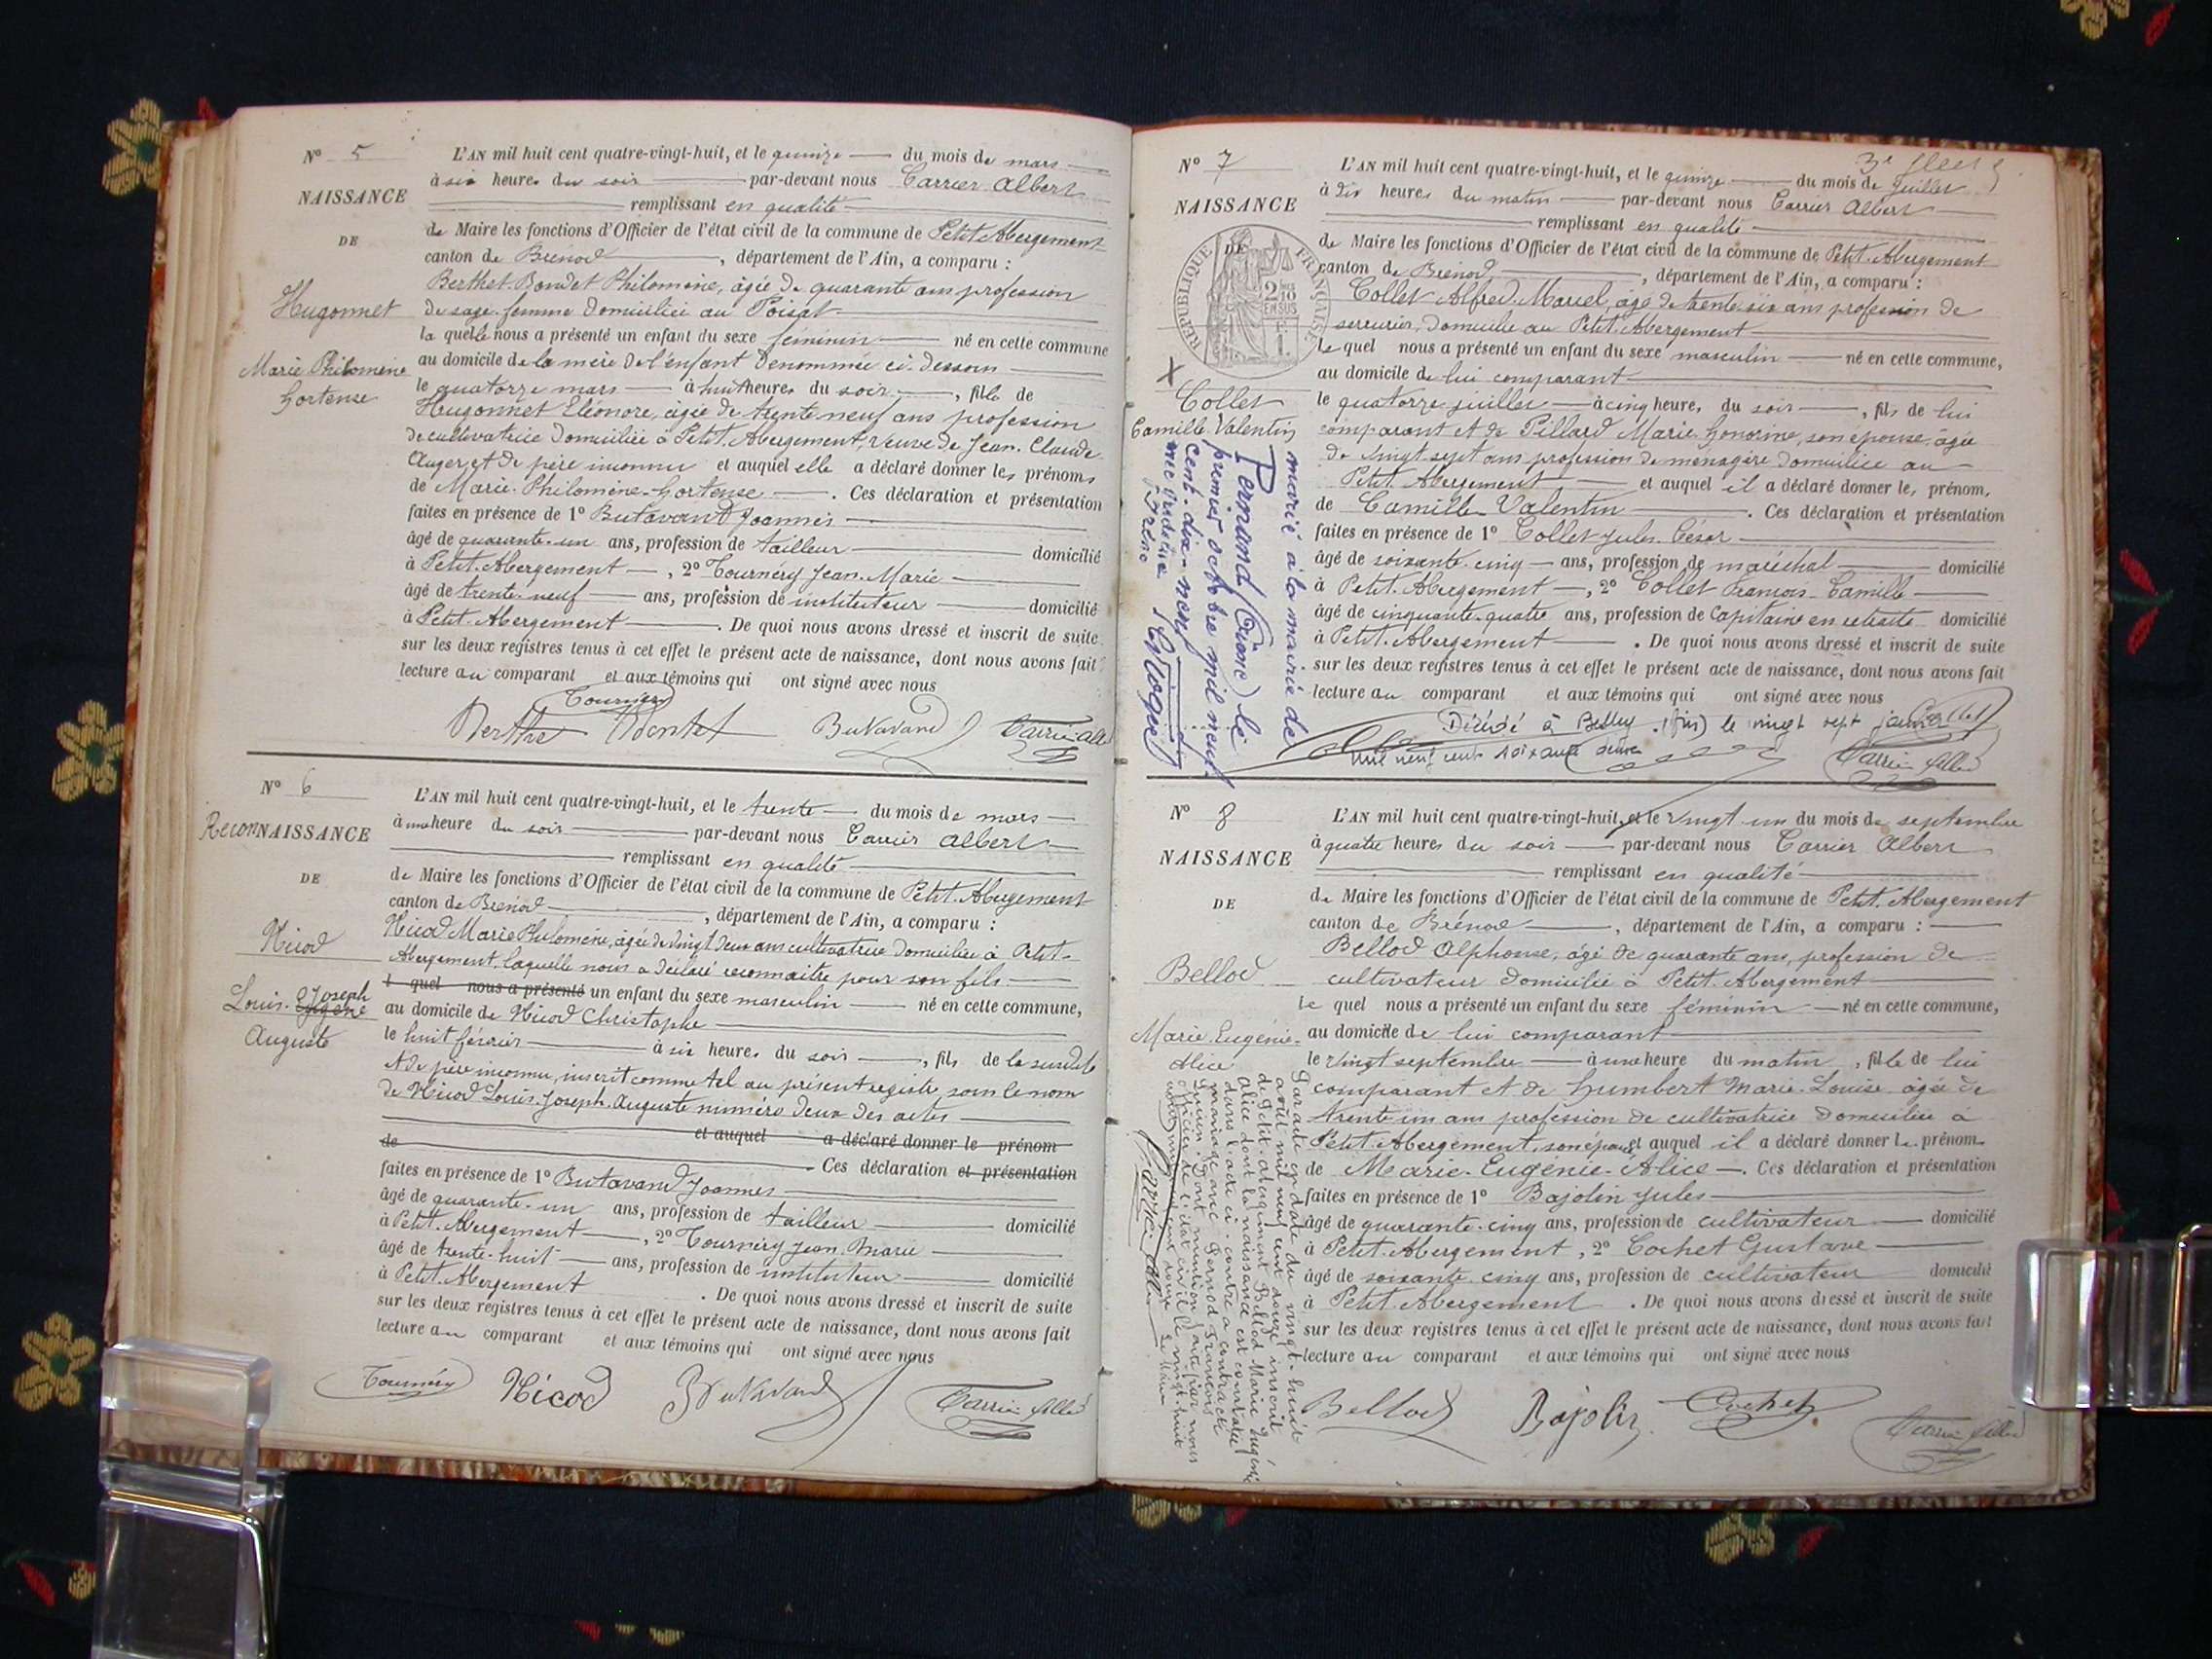 N° 5
NAISSANCE
DE
Hugonnet
Marie Philomène
Hortense
L'AN mil huit cent quatre-vingt-huit, et le quinze du mois de mars
à six heures du soir par-devant nous Carrier Albert
remplissant en qualité
de Maire les fonctions d'Officier de l'état civil de la commune de Petit Abergement
canton de Brénod, département de l'Ain, a comparu :
Berthet-Bondet Philomène, âgée de quarante ans profession
de sage-femme domiciliée au Poizat
la quelle nous a présenté un enfant du sexe féminin né en cette commune
au domicile de la mère de l'enfant dénommée ci-dessous
le quatorze mars à huit heures du soir, fille de
Hugonnet Eléonore, âgée de trente neuf ans profession
de cultivatrice domiciliée à Petit-Abergement, veuve de Jean-Claude
Auger, et de père inconnu et auquel elle a déclaré donner les prénoms
de Marie-Philomène-Hortense. Ces déclaration et présentation
faites en présence de 1° Butavand Joannès
âgé de quarante-un ans, profession de tailleur domicilié
à Petit-Abergement, 2° Tournéry Jean-Marie
âgé de trente-neuf ans, profession de instituteur domicilié
à Petit-Abergement. De quoi nous avons dressé et inscrit de suite
sur les deux registres tenus à cet effet le présent acte de naissance, dont nous avons fait
lecture au comparant et aux témoins qui ont signé avec nous
Tournéry
Berthet Bondet Butavand Carrier Albert
N° 6
ReconNAISSANCE
DE
Nicod
Louis-Eugène Joseph
Auguste
L'AN mil huit cent quatre-vingt-huit, et le trente du mois de mars
à une heure du soir par-devant nous Carrier Albert
remplissant en qualité
de Maire les fonctions d'Officier de l'état civil de la commune de Petit-Abergement
canton de Brénod, département de l'Ain, a comparu :
Nicod Marie Philomène, âgée de vingt deux ans cultivatrice domiciliée à Petit-
Abergement, laquelle nous a déclaré reconnaitre pour son fils
l quel nous a présenté un enfant du sexe masculin né en cette commune,
au domicile de Nicod Christophe
le huit février à six heures du soir, fils de la susdite
et de père inconnu, inscrit comme tel au présent registre sous le nom
de Nicod Louis-Joseph-Auguste numéro deux des actes
et auquel a déclaré donner le prénom
de Ces déclaration et présentation
faites en présence de 1° Butavand Joannès
âgé de quarante-un ans, profession de tailleur domicilié
à Petit-Abergement, 2° Tournéry Jean-Marie
âgé de trente-huit ans, profession de instituteur domicilié
à Petit-Abergement. De quoi nous avons dressé et inscrit de suite
sur les deux registres tenus à cet effet le présent acte de naissance, dont nous avons fait
lecture au comparant et aux témoins qui ont signé avec nous
Tournéry Nicod Butavand Carrier Albert
3e
N° 7
NAISSANCE
DE
RÉPUBLIQUE FRANÇAISE
2/10 EN SUS
Collet
Camille-Valentin
marié à la mairie de
Peronand (Guiene) le
premier octobre mil neuf
cent-dix-neuf
L'AN mil huit cent quatre-vingt-huit, et le quinze du mois de juillet
à dix heures du matin par-devant nous Carrier Albert
remplissant en qualité
de Maire les fonctions d'Officier de l'état civil de la commune de Petit-Abergement
canton de Brénod, département de l'Ain, a comparu :
Collet Alfred-Marcel, âgé de trente-six ans profession de
serrurier, domicilié au Petit-Abergement
le quel nous a présenté un enfant du sexe masculin né en cette commune,
au domicile de lui comparant
le quatorze juillet à cinq heures du soir, fils de lui
comparant et de Pillard Marie-Honorine, son épouse, âgée
de vingt-sept ans profession de ménagère domiciliée au
Petit-Abergement et auquel il a déclaré donner les prénoms
de Camille-Valentin. Ces déclaration et présentation
faites en présence de 1° Collet Jules-César
âgé de soixante-cinq ans, profession de maréchal domicilié
à Petit-Abergement, 2° Collet François-Camille
âgé de cinquante-quatre ans, profession de Capitaine en retraite domicilié
à Petit-Abergement. De quoi nous avons dressé et inscrit de suite
sur les deux registres tenus à cet effet le présent acte de naissance, dont nous avons fait
lecture au comparant et aux témoins qui ont signé avec nous
Décédé à Belley (Ain) le vingt sept janvier
mil neuf cent soixante
Carrier Albert
N° 8
NAISSANCE
DE
Bellod
Marie-Eugénie-
Alice
Par acte en date du vingt-huit
août mil neuf cent douze inscrit
de Petit-Abergement Bellod Marie Eugénie
Alice dont la naissance est constatée
dans l'acte ci-contre a contracté
mariage avec Pernod François
dont mention faite par nous
officier de l'état civil le vingt-huit
Le Maire
L'AN mil huit cent quatre-vingt-huit, et le vingt-un du mois de septembre
à quatre heures du soir par-devant nous Carrier Albert
remplissant en qualité
de Maire les fonctions d'Officier de l'état civil de la commune de Petit-Abergement
canton de Brénod, département de l'Ain, a comparu :
Bellod Alphonse, âgé de quarante ans, profession de
cultivateur domicilié à Petit-Abergement
le quel nous a présenté un enfant du sexe féminin né en cette commune,
au domicile de lui comparant
le vingt septembre à une heure du matin, fille de lui
comparant et de Humbert Marie-Louise âgée de
trente-un ans profession de cultivatrice domiciliée à
Petit-Abergement, son épouse et auquel il a déclaré donner les prénoms
de Marie-Eugénie-Alice. Ces déclaration et présentation
faites en présence de 1° Bajolin Jules
âgé de quarante-cinq ans, profession de cultivateur domicilié
à Petit-Abergement, 2° Cochet Gustave
âgé de soixante-cinq ans, profession de cultivateur domicilié
à Petit-Abergement. De quoi nous avons dressé et inscrit de suite
sur les deux registres tenus à cet effet le présent acte de naissance, dont nous avons fait
lecture au comparant et aux témoins qui ont signé avec nous
Bellod Bajolin Cochet Carrier Albert